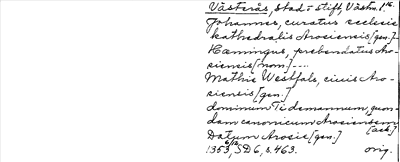 Västerås, stad o stift, Västm. l.
Johannes, curatus ecclesie
kathedralis Arosiensis [gen.]
Hæmingus, prebendatus Aro-
siensis [nom.] ---
Mathis Westfals, ciuis Aro-
siensis [gen.]
dominum Tidemannum, quon-
dam canonicum Arosiensem
[ack.]
Datum Arosie [gen.]
1353 6/12 SD 6, s. 463. orig.